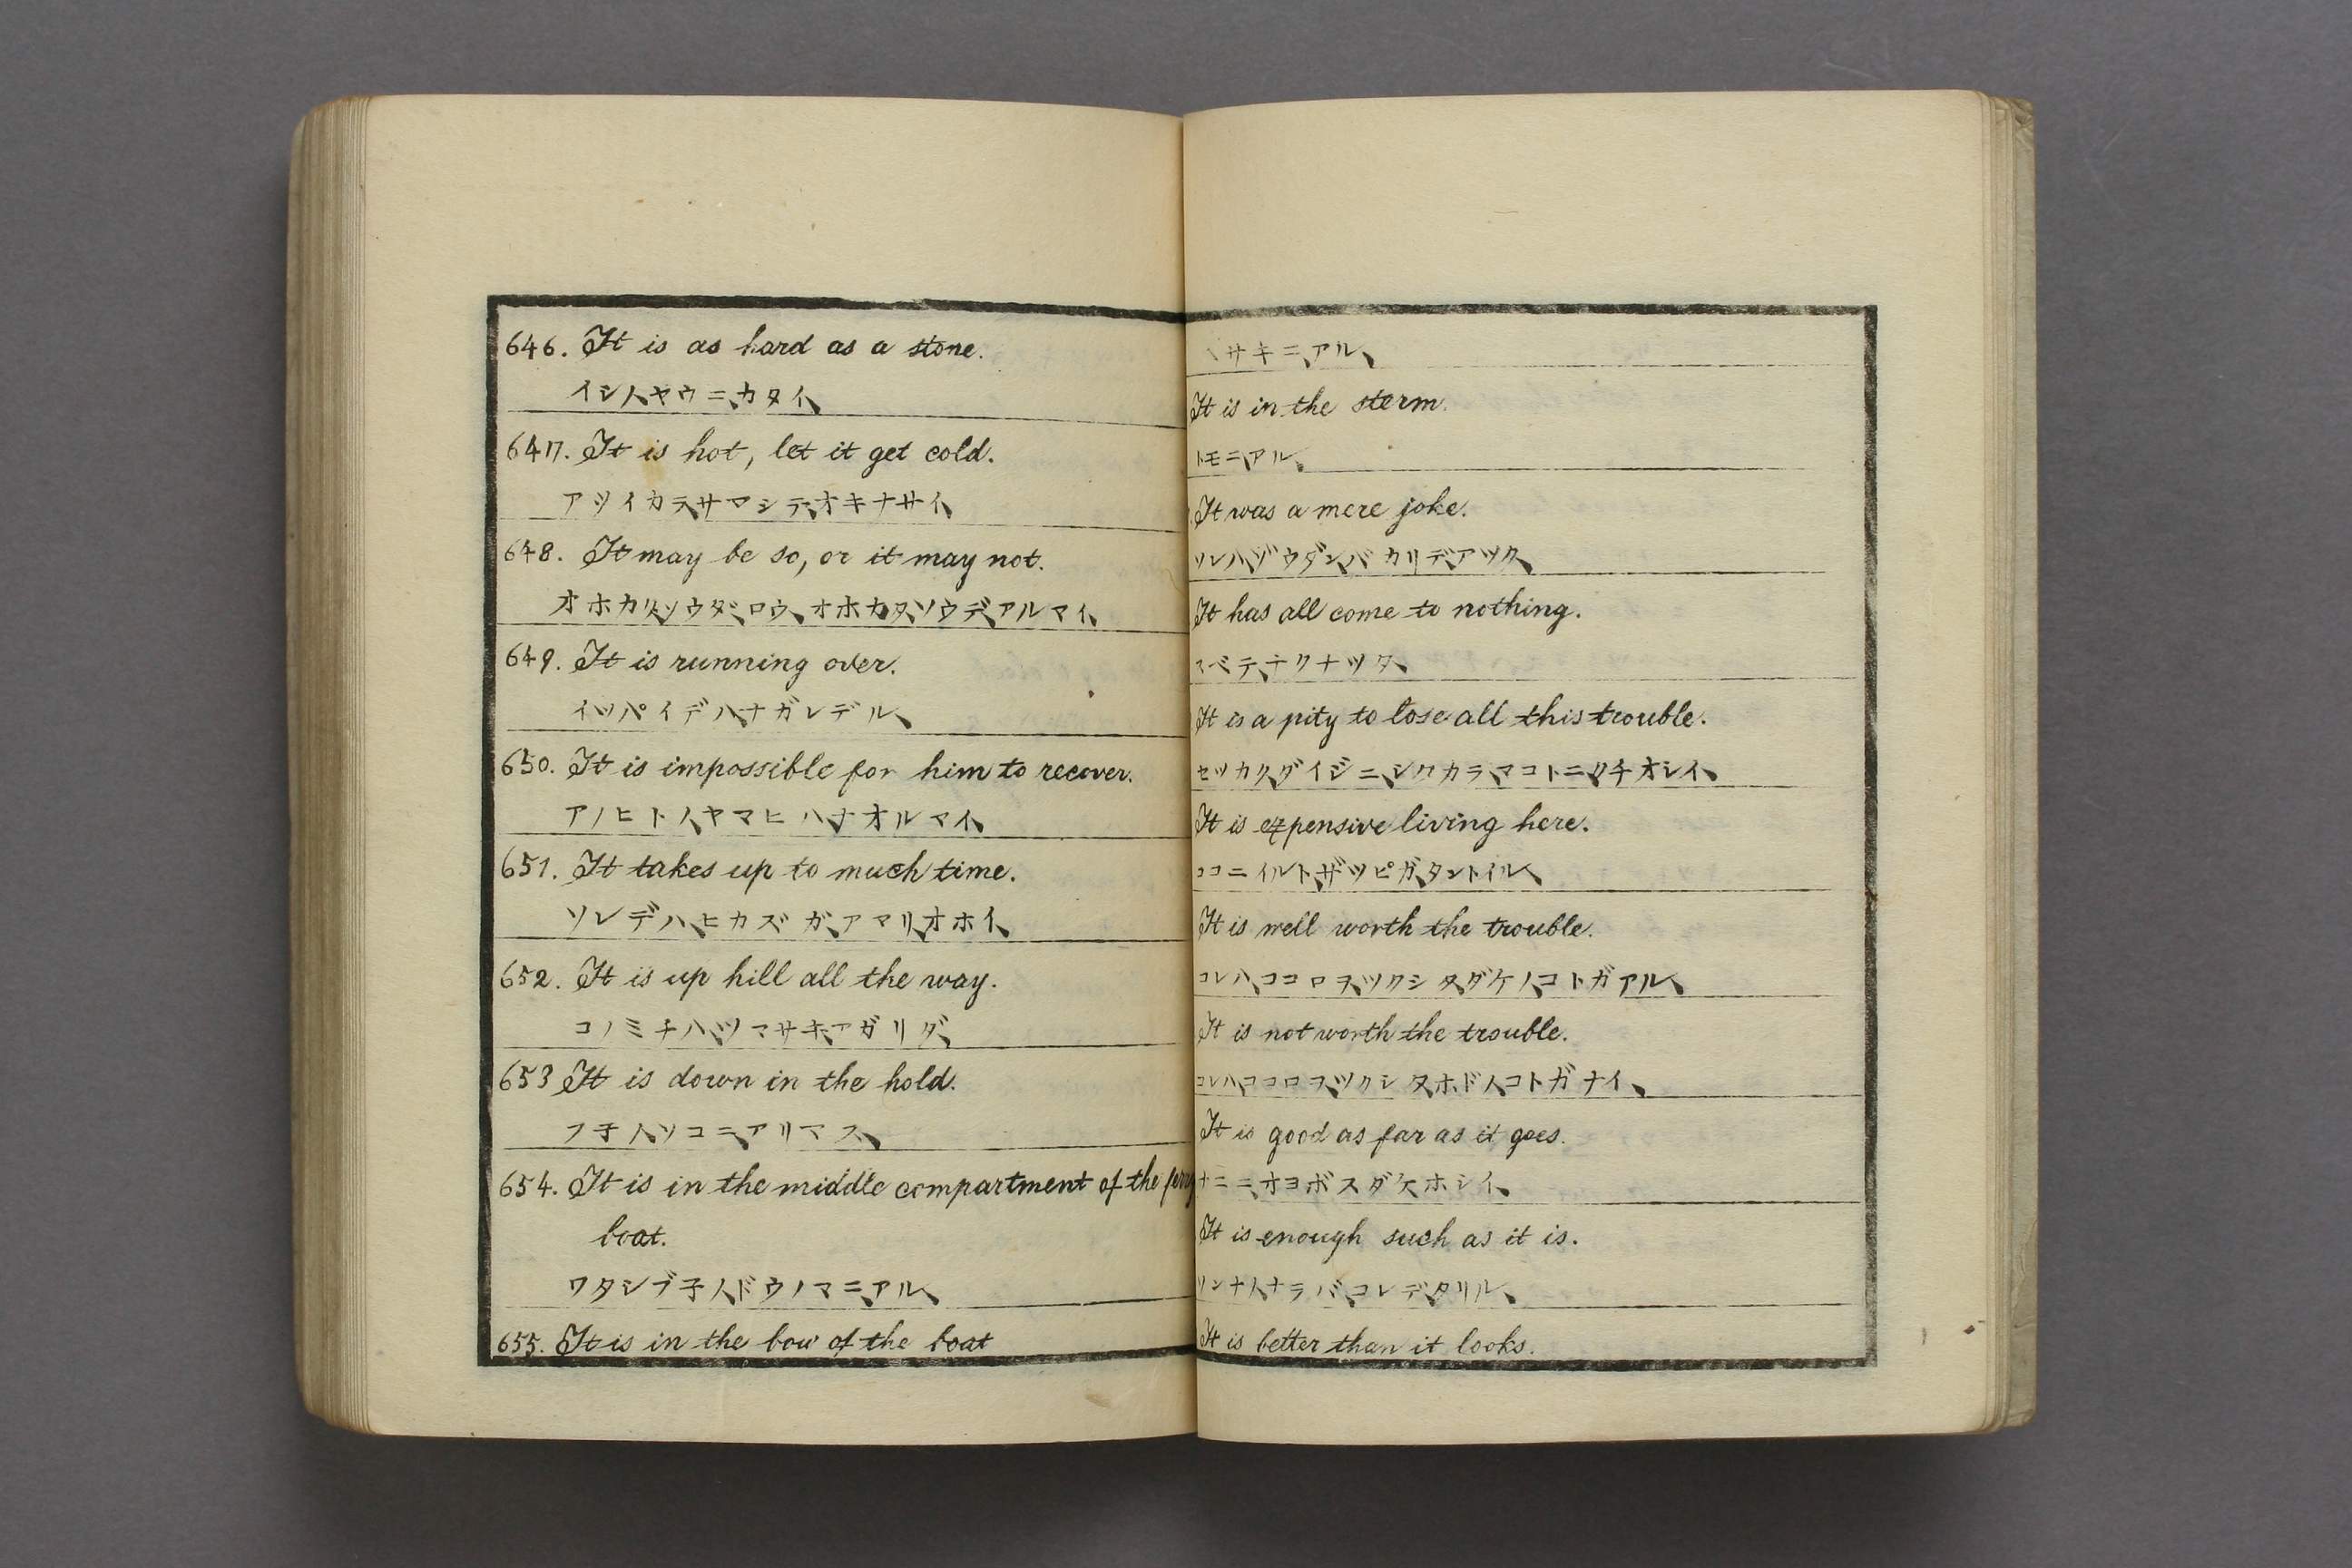 646. It is as hard as a stone.
イシノ、ヤウニ、カタイ、
647. It is hot, let it get cold.
アツイカラ、サマシテ、オキナサイ、
648. It may be so, or it may not.
オホカタ、ソウダ、ロウ、オホカタ、ソウデ、アルマイ、
649. It is running over.
イツパイデハ、ナガレデル、
650. It is impossible for him to recover.
アノヒトノ、ヤマヒハ、ナオルマイ、
651. It takes up to much time.
ソレデハ、ヒカズガ、アマリ、オホイ、
652. It is up hill all the way.
コノミチハ、ツマサキ、アガリダ、
653 It is down in the hold.
フ子ノ、ソコニ、アリマス、
654. It is in the middle compartment of the ferry
boat.
ワタシブ子ノ、ドウノマニ、アル、
655. It is in the bow of the boat
サキニ、アル、
It is in the sterm.
トモニ、アル、
It was a mere joke.
ソレハ、ゾウダン、バカリデ、アツタ、
It has all come to nothing.
スベテ、ナクナツタ、
It is a pity to lose all this trouble.
セツカク、ダイジニ、シタカラ、マコトニ、クチオシイ、
It is expensive living here.
ココニイルト、ザツピガ、タントイル、
It is well worth the trouble.
コレハ、ココロヲ、ツクシタ、ダケノ、コトガアル、
It is not worth the trouble.
コレハ、ココロヲ、ツクシタ、ホドノ、コトガナイ、
It is good as far as it goes.
ナニニ、オヨボスダケホシイ、
It is enough such as it is.
ソンナ、ナラバ、コレデ、タリル、
It is better than it looks.